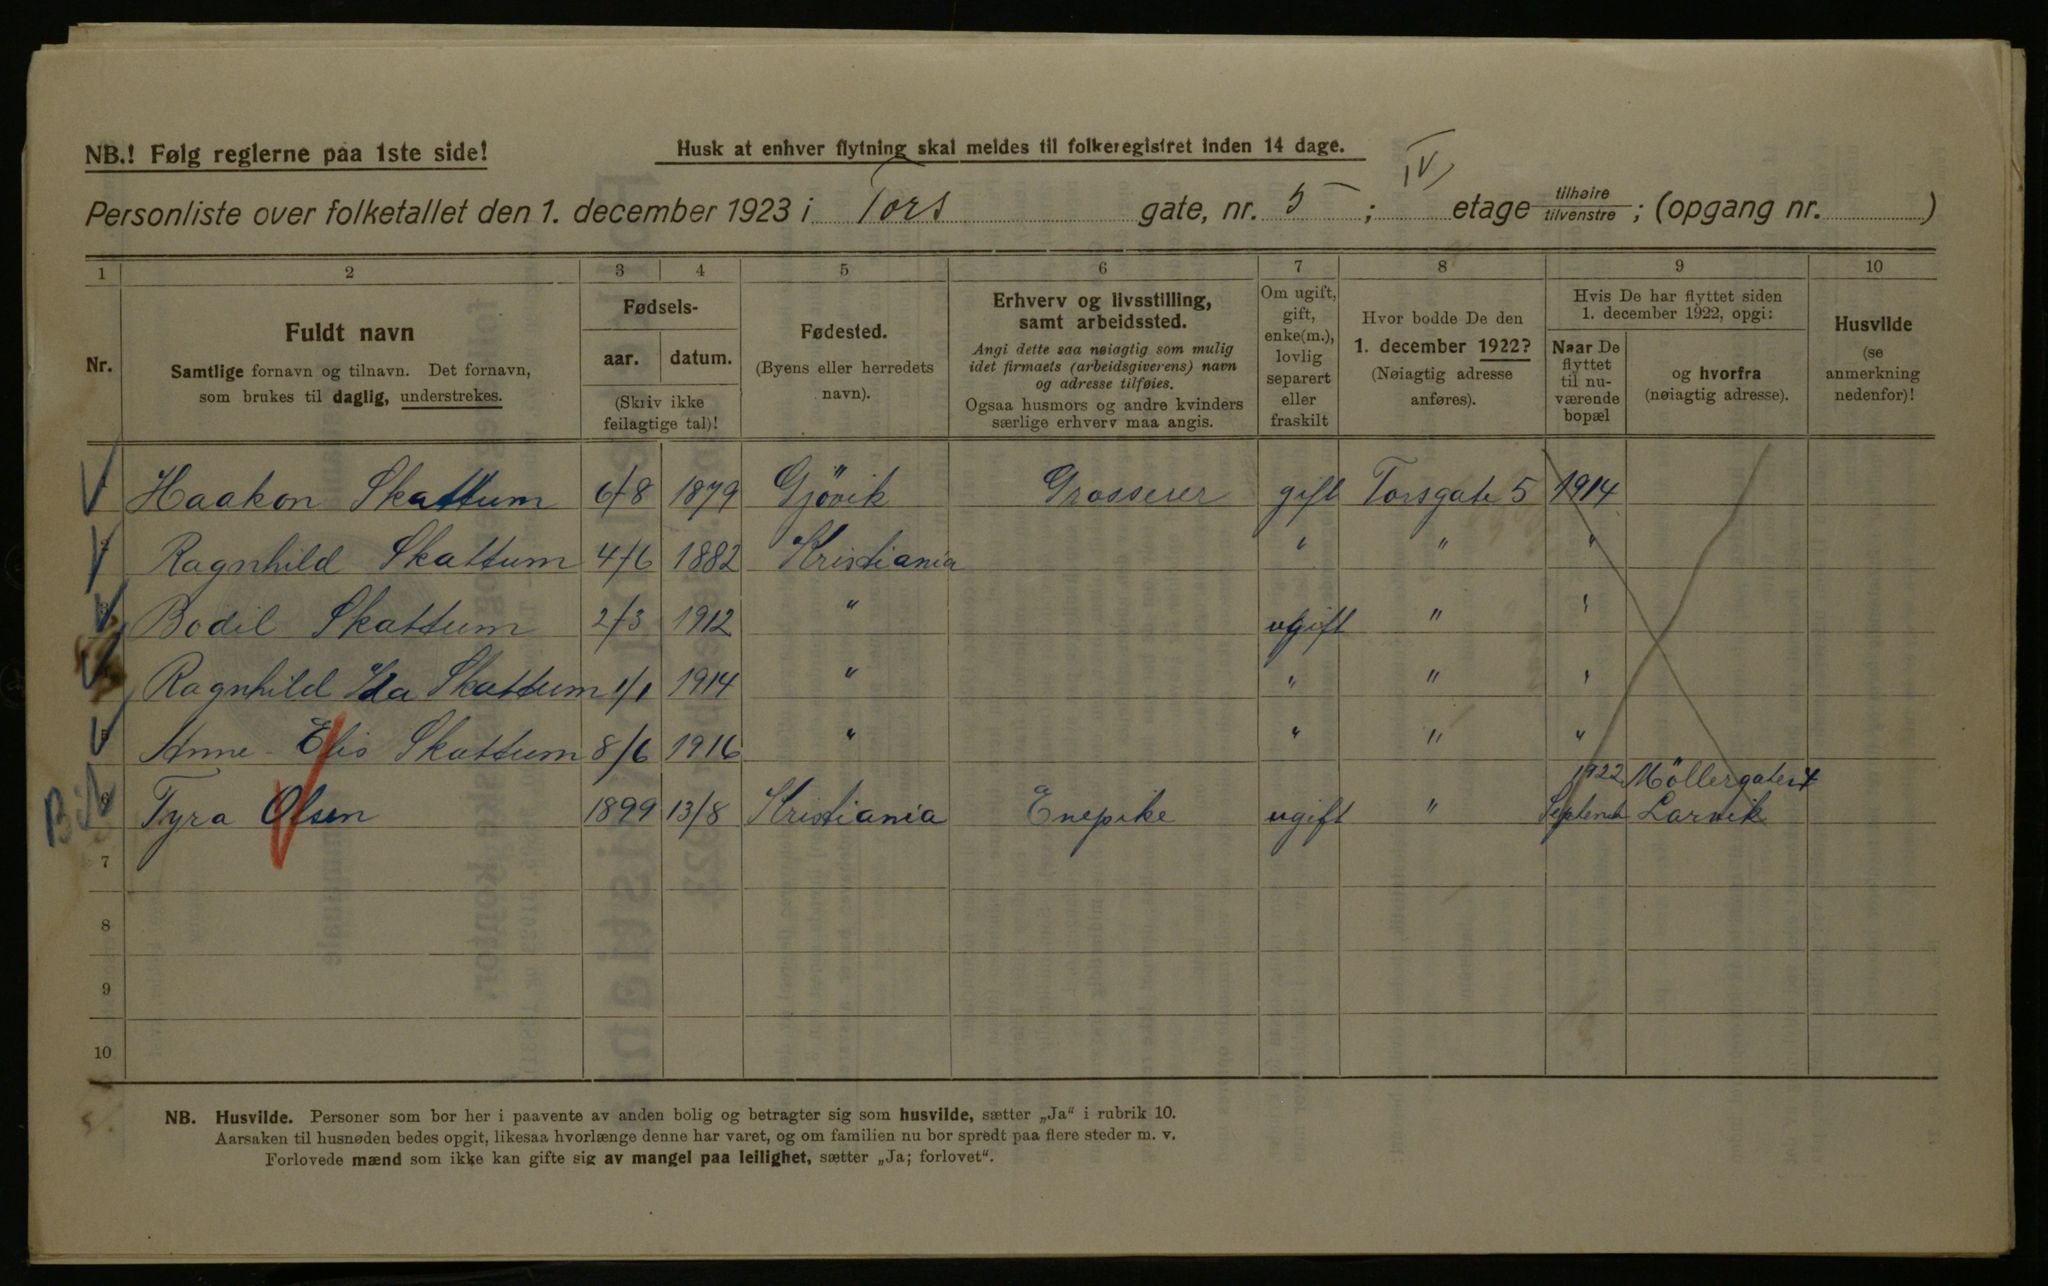 NB.! Følg reglerne paa 1ste side!
Husk at enhver flytning skal meldes til folkeregistret inden 14 dage.
Personliste over folketallet den 1. december 1923 i Tors gate, nr. 5 ; IV, etage tilhøire/tilvenstre ; (opgang nr. )
1 2 3 4 5 6 7 8 9 10
Nr.
Fuldt navn
Samtlige fornavn og tilnavn. Det fornavn,
som brukes til daglig, understrekes.
Fødsels-
aar. datum.
(Skriv ikke
feilagtige tal)!
Fødested.
(Byens eller herredets
navn).
Erhverv og livsstilling,
samt arbeidssted.
Angi dette saa nøiagtig som mulig
idet firmaets (arbeidsgiverens) navn
og adresse tilføies.
Ogsaa husmors og andre kvinders
særlige erhverv maa angis.
Om ugift,
gift,
enke(m.),
lovlig
separert
eller
fraskilt
Hvor bodde De den
1. december 1922?
(Nøiagtig adresse
anføres).
Hvis De har flyttet siden
1. december 1922, opgi:
Naar De
flyttet
til nu-
værende
bopæl
og hvorfra
(nøiagtig adresse).
Husvilde
(se
anmerkning
nedenfor)!
Haakon Skattum 6/8 1879 Gjövik Grosserer gift Torsgate 5 1914
Ragnhild Skattum 4/6 1882 Kristiania " " "
Bodil Skattum 2/3 1912 " ugift " "
Ragnhild Ida Skattum 1/1 1914 " " " "
5 Anne-Elis Skattum 8/6 1916 " " " "
1922 Möllergaten 4
6 Tyra Olsen 1899 13/8 Kristiania Enepike ugift " Larvik
7
8
9
10
NB. Husvilde. Personer som bor her i paavente av anden bolig og betragter sig som husvilde, sætter „Ja“ i rubrik 10.
Aarsaken til husnøden bedes opgit, likesaa hvorlænge denne har varet, og om familien nu bor spredt paa flere steder m. v.
Forlovede mænd som ikke kan gifte sig av mangel paa leilighet, sætter „Ja; forlovet“.